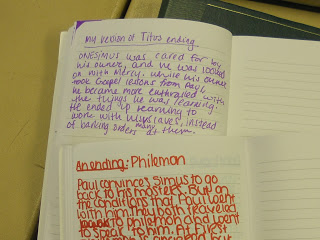 My version of Titus ending.
ONESIMUS was cared for by
his owner, and he was looked
on with Mercy. While his owner
took Gospel lessons from Paul,
he became more enthralled with
the things he was learning.
He ended up learning to
work with his slaves, instead
of barking orders many at them.
An ending: Philemon
Paul convinces Simus to go
back to his masters. But on
the conditions that Paul went
with him. They both traveled
to Philemon and Paul went
to speak to him. At First